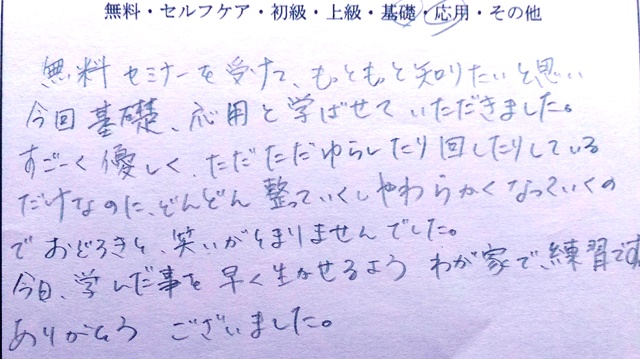 無料・セルフケア・初級・上級・基礎・応用・その他
無料セミナーを受けて、もっともっと知りたいと思い
今回基礎、応用と学ばせていただきました。
すごーく優しく、ただただゆらしたり回したりしている
だけなのに、どんどん整っていくしやわらかくなっていくの
でおどろきと、笑いがとまりませんでした。
今日、学んだ事を早く生かせるようわが家で、練習です。
ありがとうございました。